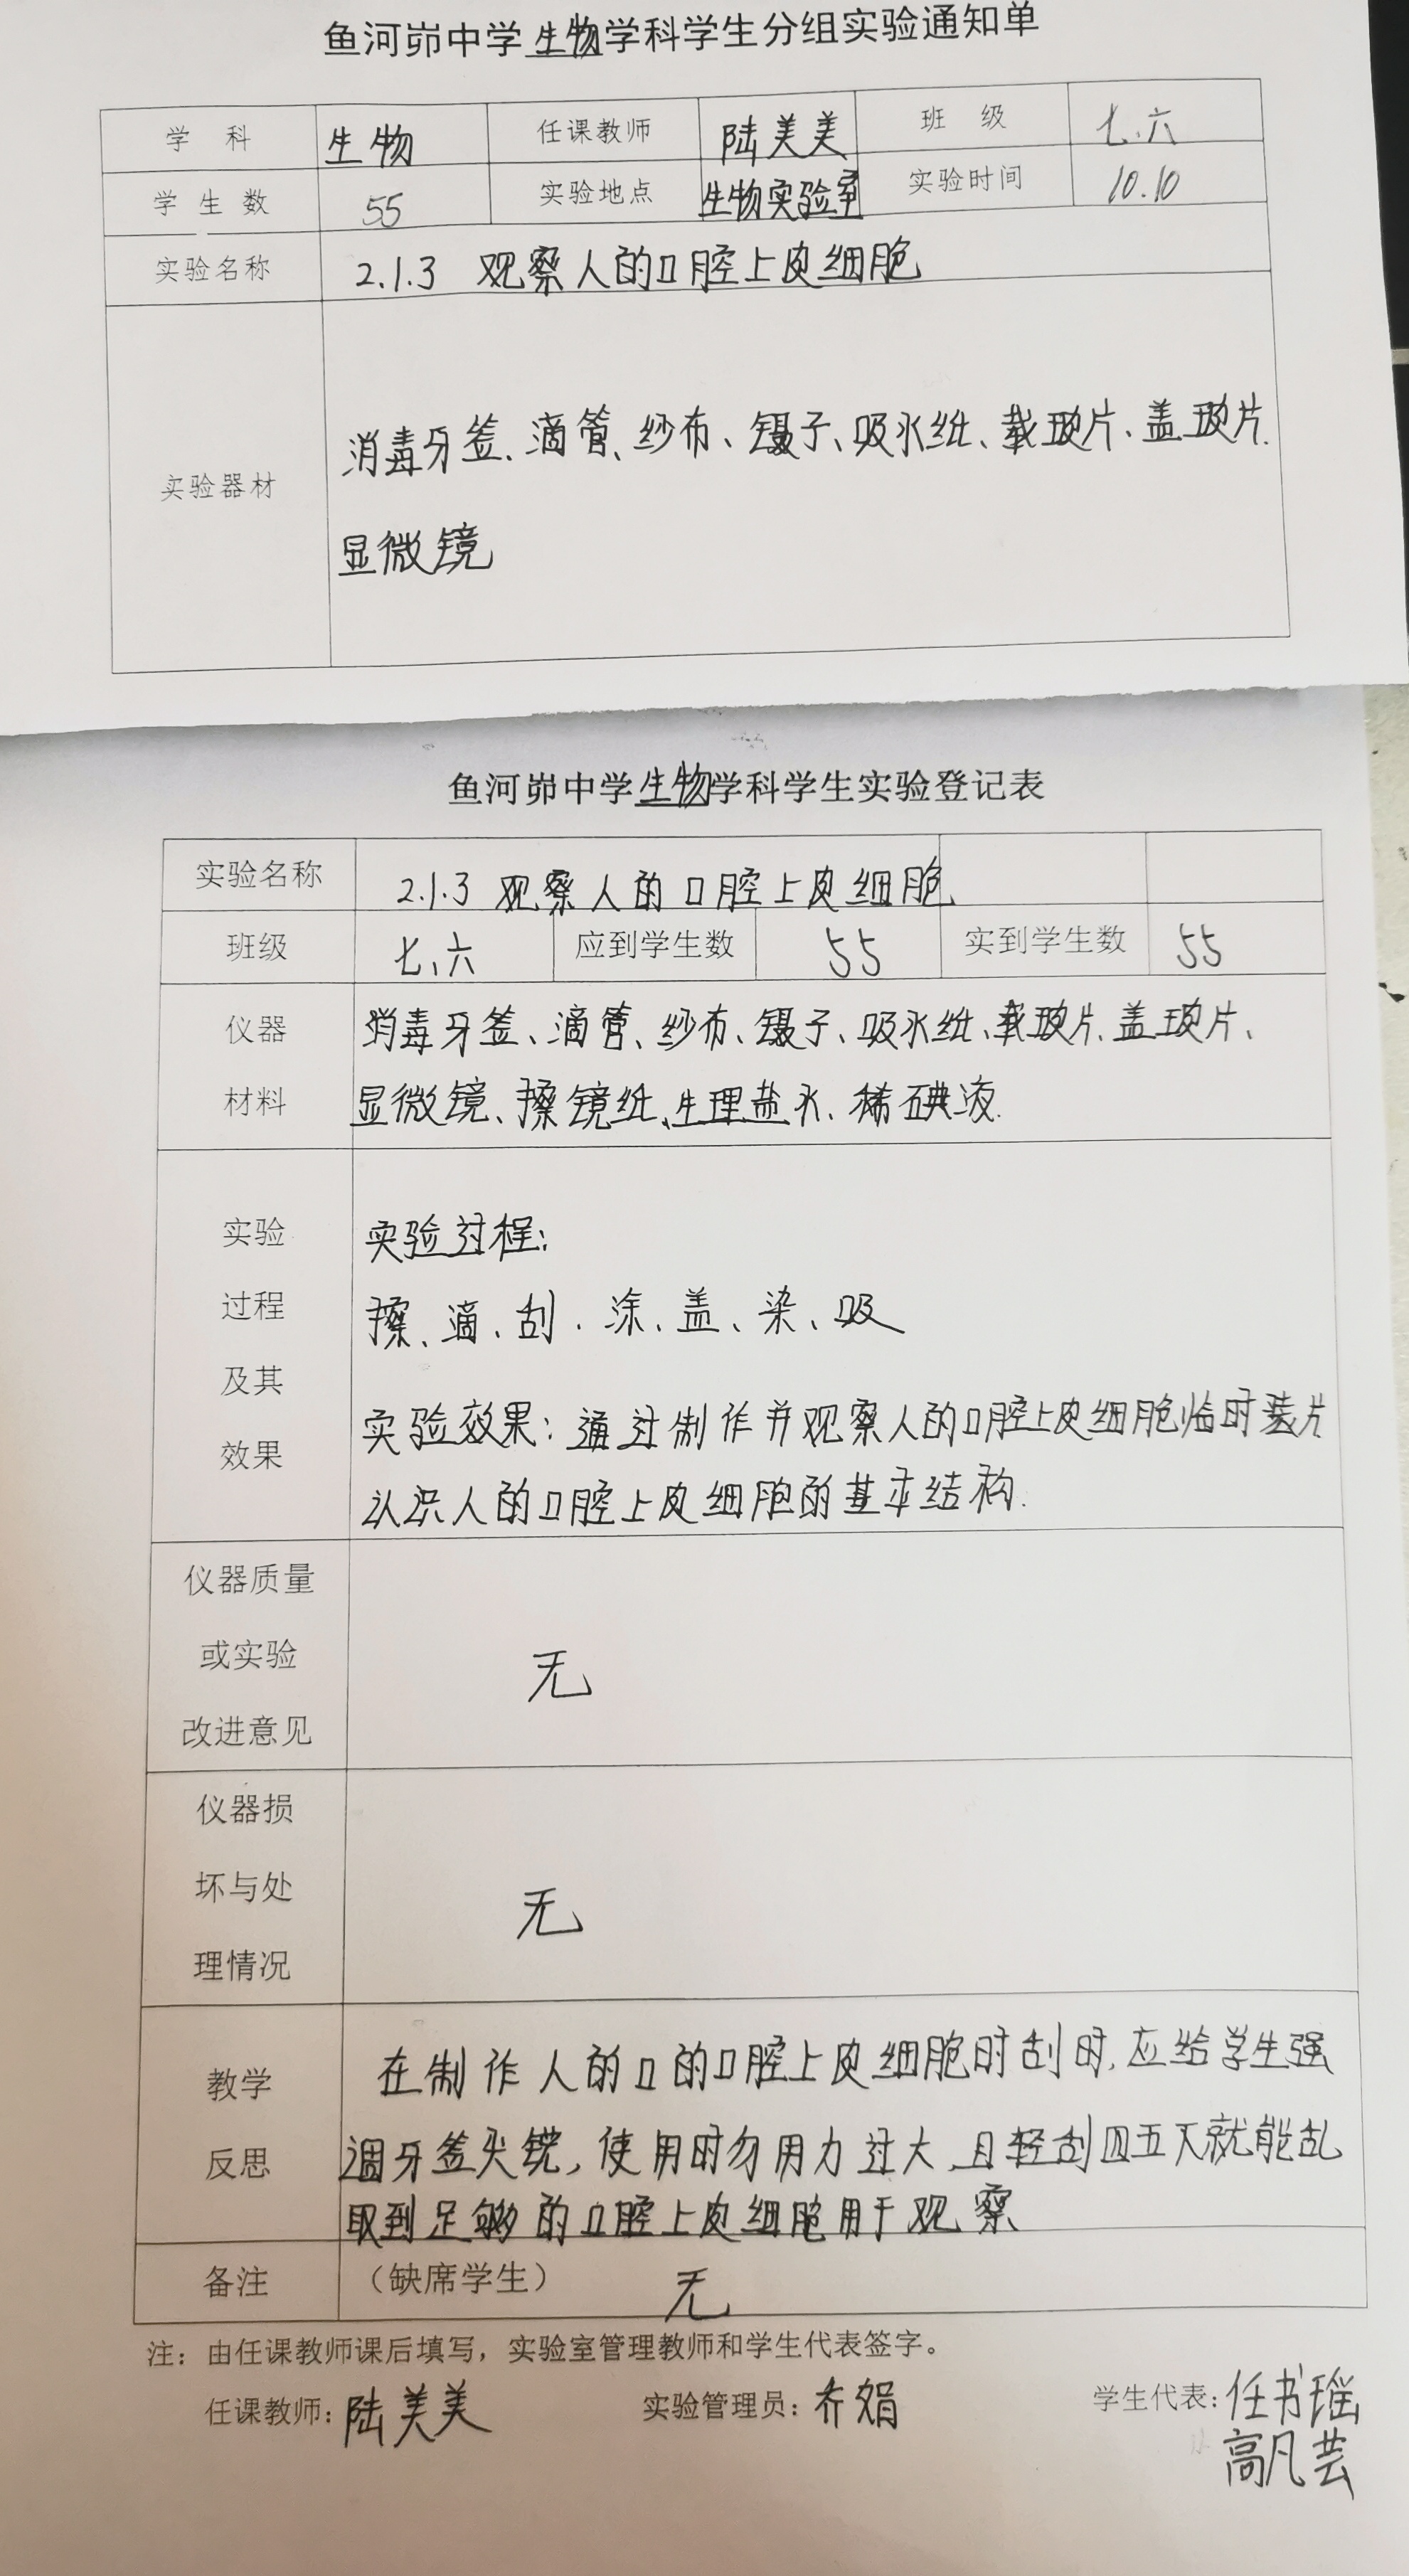 鱼河峁中学生物学科学生分组实验通知单
学 科 生物 任课教师 陆美美 班 级 七、六
学生数 55 实验地点 生物实验室 实验时间 10.10
实验名称 2.1.3 观察人的口腔上皮细胞
消毒牙签、滴管、纱布、镊子、吸水纸、载玻片、盖玻片.
实验器材
显微镜
鱼河峁中学生物学科学生实验登记表
实验名称 2.1.3 观察人的口腔上皮细胞
班级 七、六 应到学生数 55 实到学生数 55
仪器 消毒牙签、滴管、纱布、镊子、吸水纸、载玻片、盖玻片、
材料 显微镜、擦镜纸、生理盐水、稀碘液.
实验 实验过程:
过程 擦、滴、刮、涂、盖、染、吸
及其
实验效果: 通过制作并观察人的口腔上皮细胞临时装片
效果
认识人的口腔上皮细胞的基本结构.
仪器质量
或实验 无
改进意见
仪器损
坏与处 无
理情况
在制作人的口的口腔上皮细胞时刮时,应给学生强
教学
调牙签尖锐,使用时勿用力过大,且轻刮四五下就能刮
反思
取到足够的口腔上皮细胞用于观察
备注 （缺席学生） 无
注：由任课教师课后填写，实验室管理教师和学生代表签字。
任课教师: 陆美美 实验管理员: 乔娟 学生代表: 任书瑶
高凡芸